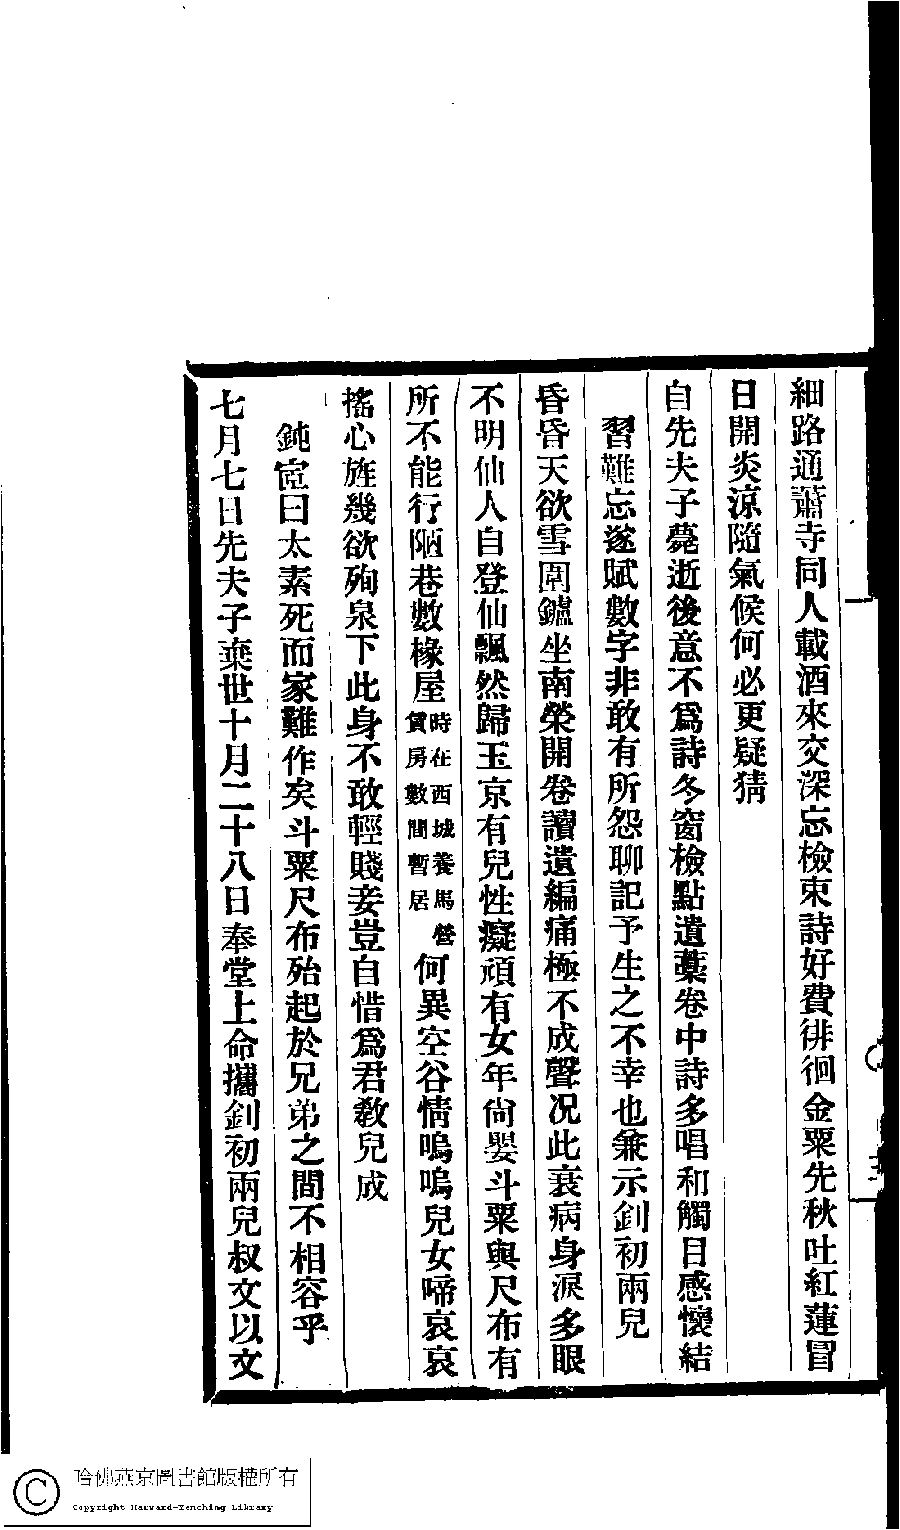 細路通蕭寺同人載酒來交深忘檢束詩好費徘徊金粟先秋吐紅蓮冒
日開炎涼隨氣候何必更疑猜
自先夫子薨逝後意不爲詩冬窗檢點遺藁卷中詩多唱和觸目感懷結
習難忘遂賦數字非敢有所怨聊記予生之不幸也兼示釗初兩兒
昏昏天欲雪圍鑪坐南榮開卷讀遺編痛極不成聲况此衰病身淚多眼
不明仙人自登仙飄然歸玉京有兒性癡頑有女年尙嬰斗粟與尺布有
所不能行陋巷數椽屋時在西城養馬營賃房數間暫居何異空谷情嗚嗚兒女啼哀哀
搖心旌幾欲殉泉下此身不敢輕賤妾豈自惜爲君敎兒成
鈍宧曰太素死而家難作矣斗粟尺布殆起於兄弟之間不相容乎
七月七日先夫子棄世十月二十八日奉堂上命攜釗初兩兒叔文以文
哈佛燕京圖書館版權所有
Copyright Harvard-Yenching Library